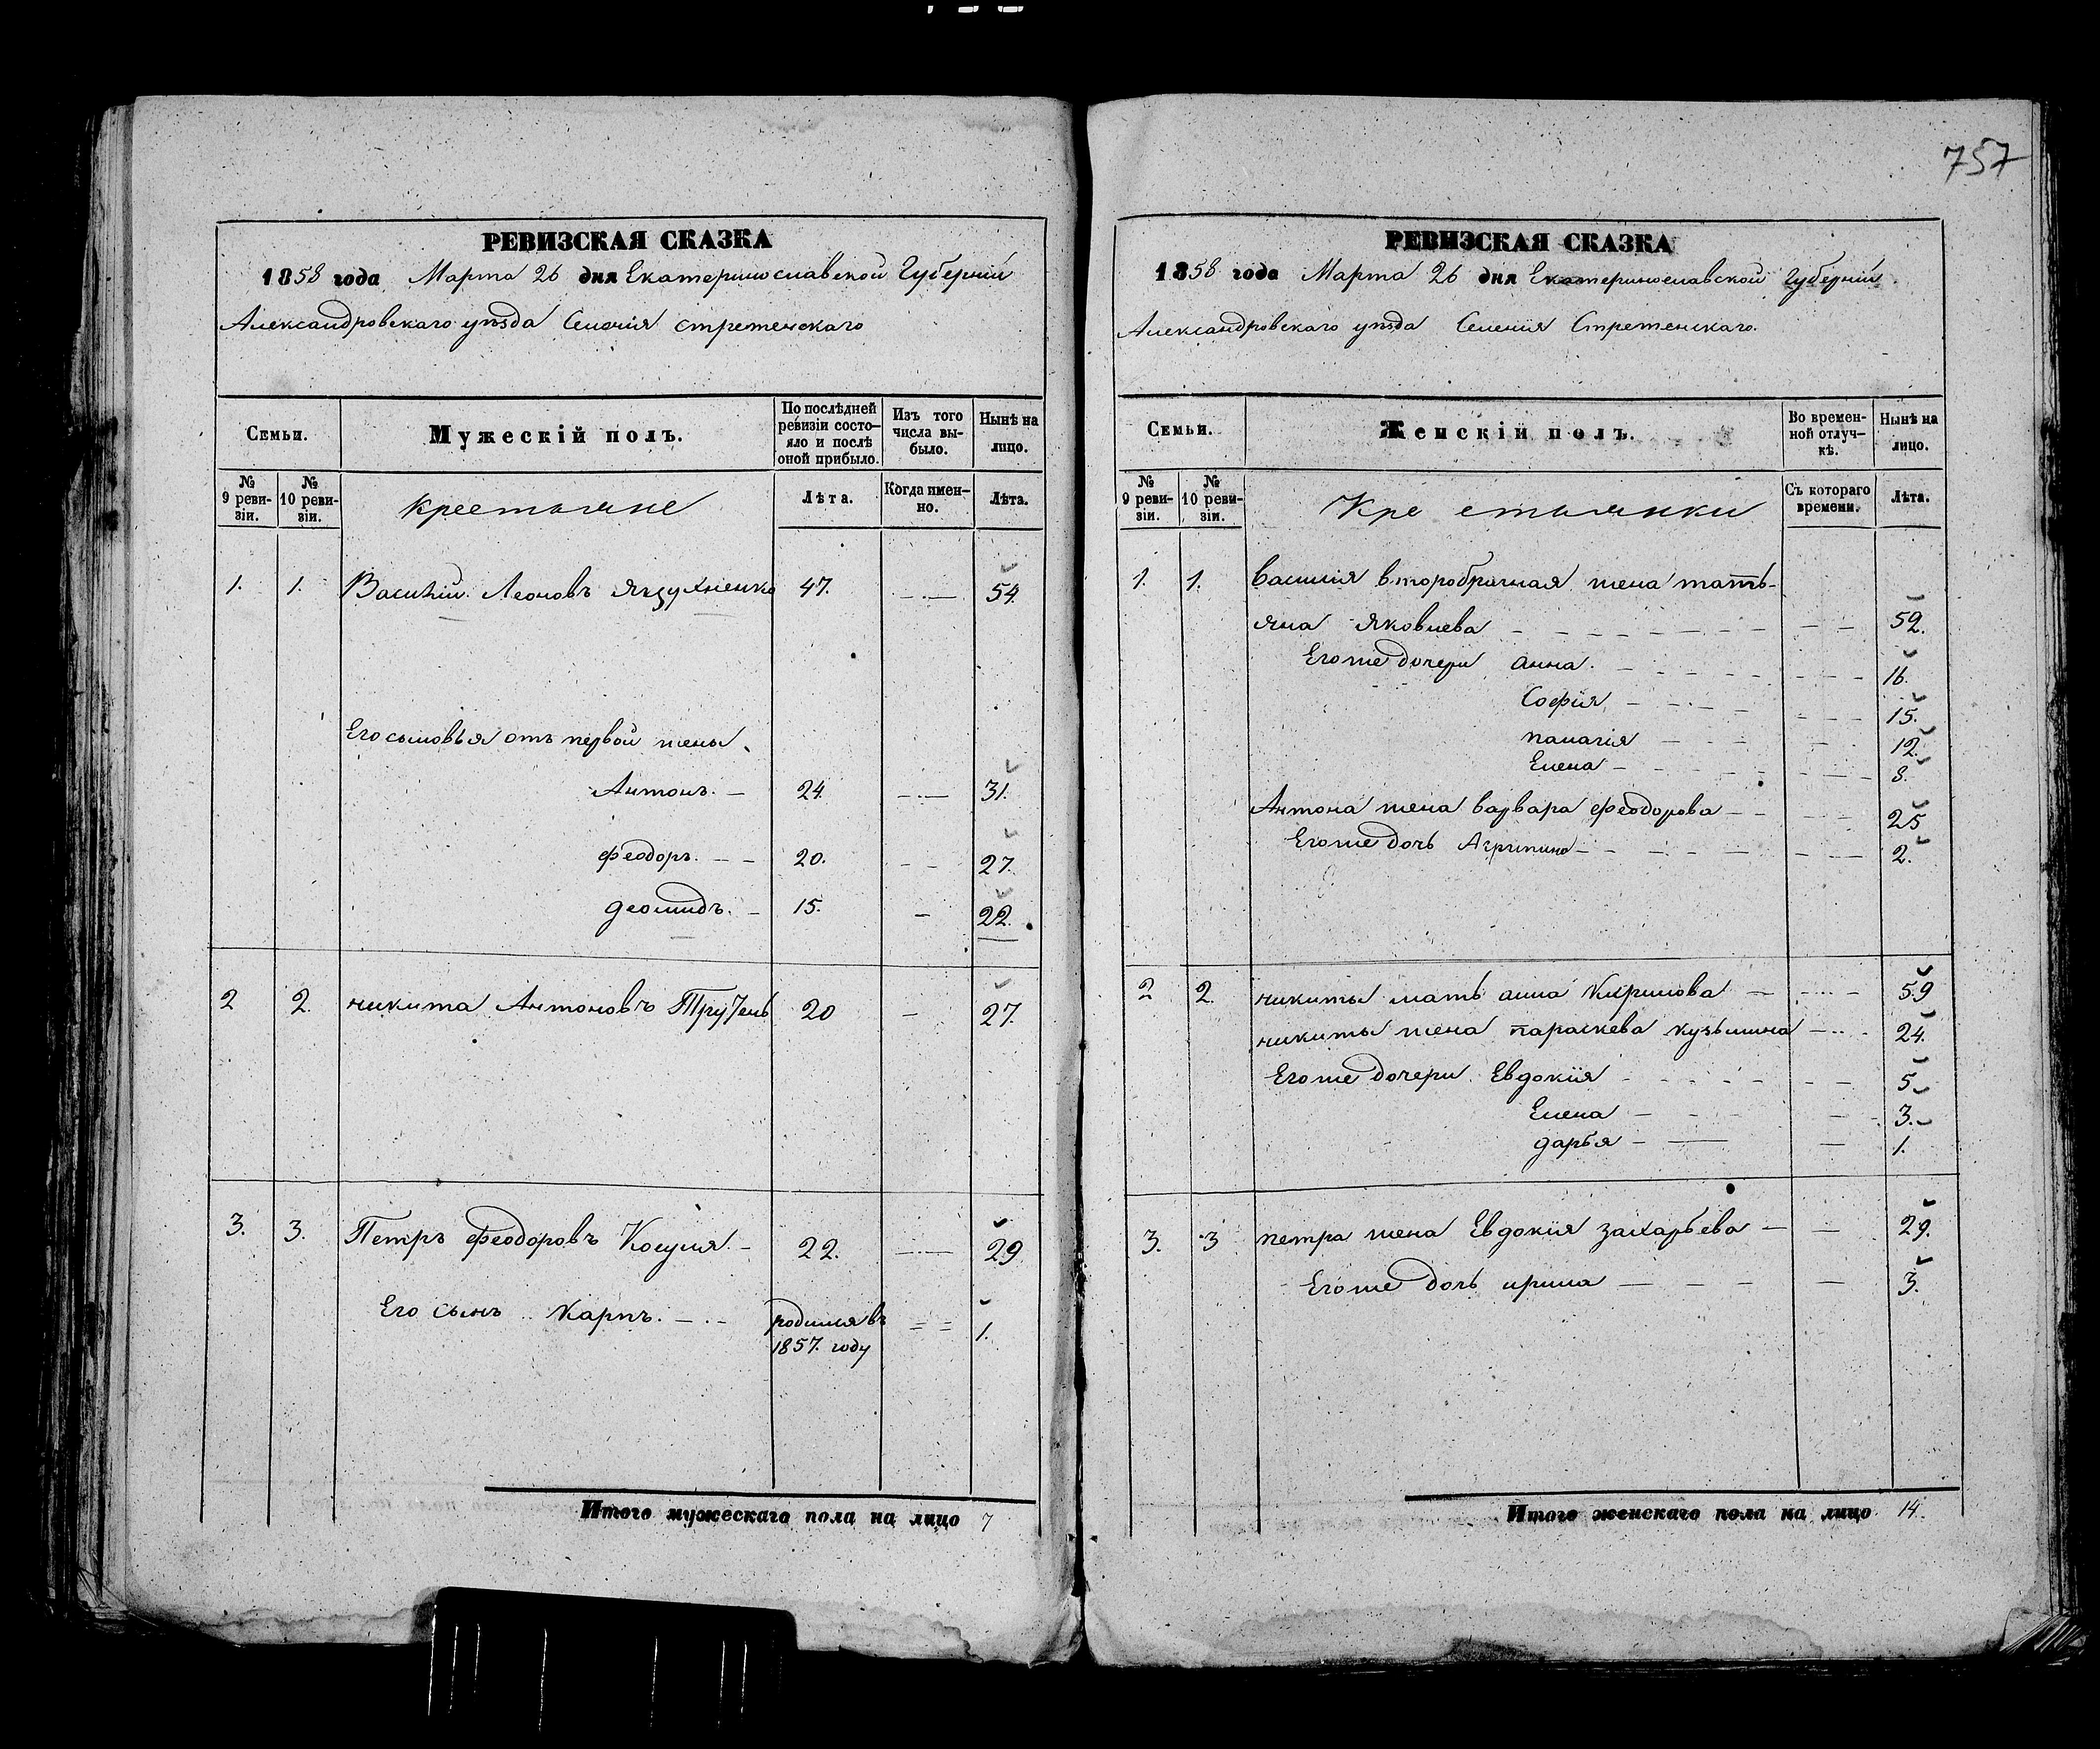 757
РЕВИЗСКАЯ СКАЗКА
1858 года Марта 26 дня Екатеринославской Губерніи
Александровскаго уѣзда Селенія Стретенскаго
Семьи. Мужескій полъ. По послѣдней ревизіи состояло и послѣ оной прибыло. Изъ того числа выбыло. Нынѣ на лицо.
№ 9 ревизіи. № 10 ревизіи. Крестьяне Лѣта. Когда именно. Лѣта.
1. 1. Василій Леоновъ 47. 54.
Его сыновья отъ первой жены
Антонъ. 24. 31.
Феодоръ. 20. 27.
Деомидъ. 15. 22.
2 2. Никита Антоновъ 20 27.
3. 3. Петръ Феодоровъ Косуля. 22. 29
Его сынъ Карпъ. родился въ 1.
1857. году
Итого мужескаго пола на лицо 7
РЕВИЗСКАЯ СКАЗКА
1858 года Марта 26 дня Екатеринославской Губерніи
Александровскаго уѣзда Селенія Стретенскаго.
Семьи. Женскій полъ. Во временной отлучкѣ. Нынѣ на лицо.
№ 9 ревизіи. № 10 ревизіи. Крестьянки Съ котораго времени. Лѣта.
1. 1. Василія второбрачная жена Тать-
яна Яковлева 52.
Его же дочери Анна. 16.
Софія 15.
Палагія 12.
Елена 8.
Антона жена Варвара Феодорова 25
Его же дочь Агрипина 2.
2 2. Никиты мать Анна Кирилова 59
Никиты жена Параскева Кузьмина 24.
Его же дочери Евдокія 5
Елена 3.
Дарья 1.
3. 3 Петра жена Евдокія Захарьева 29.
Его же дочь Ирина 3.
Итого женскаго пола на лицо 14.